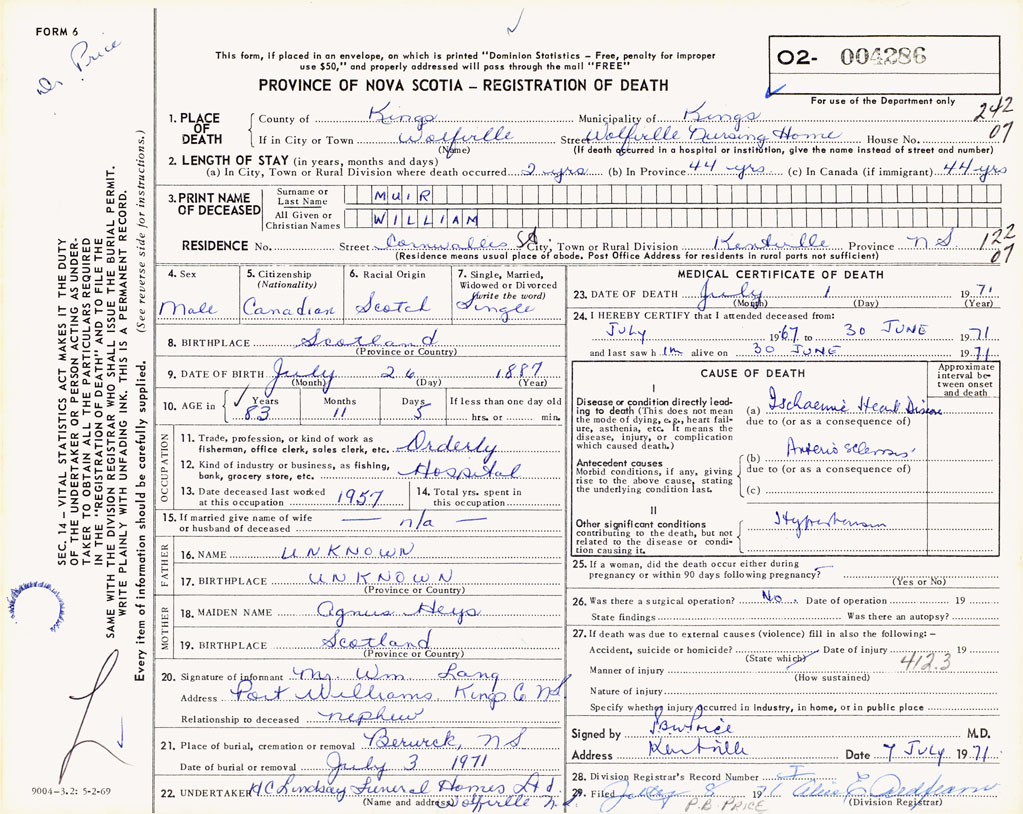 FORM 6
Dr Price
This form, if placed in an envelope, on which is printed "Dominion Statistics – Free, penalty for improper
use $50," and properly addressed will pass through the mail "FREE"
02- 004286
PROVINCE OF NOVA SCOTIA – REGISTRATION OF DEATH
For use of the Department only
1. PLACE OF DEATH County of Kings Municipality of Kings 242
If in City or Town Wolfville Street Wolfville Nursing Home House No. 07
(Name) (If death occurred in a hospital or institution, give the name instead of street and number)
2. LENGTH OF STAY (in years, months and days)
(a) In City, Town or Rural Division where death occurred 2 yrs (b) In Province 44 yrs (c) In Canada (if immigrant) 44 yrs
3. PRINT NAME OF DECEASED Surname or Last Name MUIR
All Given or Christian Names WILLIAM
RESIDENCE No. Street Cornwallis St City, Town or Rural Division Kentville Province NS 122
(Residence means usual place of abode. Post Office Address for residents in rural parts not sufficient) 07
4. Sex Male
5. Citizenship (Nationality) Canadian
6. Racial Origin Scotch
7. Single, Married, Widowed or Divorced (write the word) Single
8. BIRTHPLACE Scotland
(Province or Country)
9. DATE OF BIRTH July 26 1887
(Month) (Day) (Year)
10. AGE in Years Months Days If less than one day old
83 11 5 hrs. or min.
OCCUPATION
11. Trade, profession, or kind of work as
fisherman, office clerk, sales clerk, etc. Orderly
12. Kind of industry or business, as fishing,
bank, grocery store, etc. Hospital
13. Date deceased last worked
at this occupation 1957
14. Total yrs. spent in
this occupation
15. If married give name of wife
or husband of deceased — n/a —
FATHER
16. NAME UNKNOWN
17. BIRTHPLACE UNKNOWN
(Province or Country)
MOTHER
18. MAIDEN NAME Agnus Heys
19. BIRTHPLACE Scotland
(Province or Country)
20. Signature of informant Mr. Wm Lang
Address Port Williams, Kings Co NS
Relationship to deceased nephew
21. Place of burial, cremation or removal Berwick, NS
Date of burial or removal July 3 1971
22. UNDERTAKER HC Lindsay Funeral Homes Ltd.
(Name and address) Wolfville N.S.
MEDICAL CERTIFICATE OF DEATH
23. DATE OF DEATH July 1 1971
(Month) (Day) (Year)
24. I HEREBY CERTIFY that I attended deceased from:
JULY 1967 to 30 JUNE 1971
and last saw h im alive on 30 JUNE 1971
CAUSE OF DEATH
Approximate interval between onset and death
I
Disease or condition directly leading to death (This does not mean the mode of dying, e.g., heart failure, asthenia, etc. It means the disease, injury, or complication which caused death.)
(a) Ischaemic Heart Disease
due to (or as a consequence of)
Antecedent causes
Morbid conditions, if any, giving rise to the above cause, stating the underlying condition last.
(b) Arterio sclerosis
due to (or as a consequence of)
(c)
II
Other significant conditions
contributing to the death, but not related to the disease or condition causing it.
Hypertension
25. If a woman, did the death occur either during
pregnancy or within 90 days following pregnancy?
(Yes or No)
26. Was there a surgical operation? No. Date of operation 19
State findings Was there an autopsy?
27. If death was due to external causes (violence) fill in also the following: –
Accident, suicide or homicide? Date of injury 19
(State which) 412.3
Manner of injury
(How sustained)
Nature of injury
Specify whether injury occurred in industry, in home, or in public place
Signed by PBW Price M.D.
Address Kentville Date 7 July 1971
28. Division Registrar's Record Number I
29. Filed July 8 1971
P.B. PRICE (Division Registrar)
SEC. 14 – VITAL STATISTICS ACT MAKES IT THE DUTY
OF THE UNDERTAKER OR PERSON ACTING AS UNDER-
TAKER TO OBTAIN ALL THE PARTICULARS REQUIRED
IN THE "REGISTRATION OF DEATH" AND TO FILE THE
SAME WITH THE DIVISION REGISTRAR WHO SHALL ISSUE THE BURIAL PERMIT.
WRITE PLAINLY WITH UNFADING INK. THIS IS A PERMANENT RECORD.
Every item of information should be carefully supplied. (See reverse side for instructions.)
9004-3.2: 5-2-69